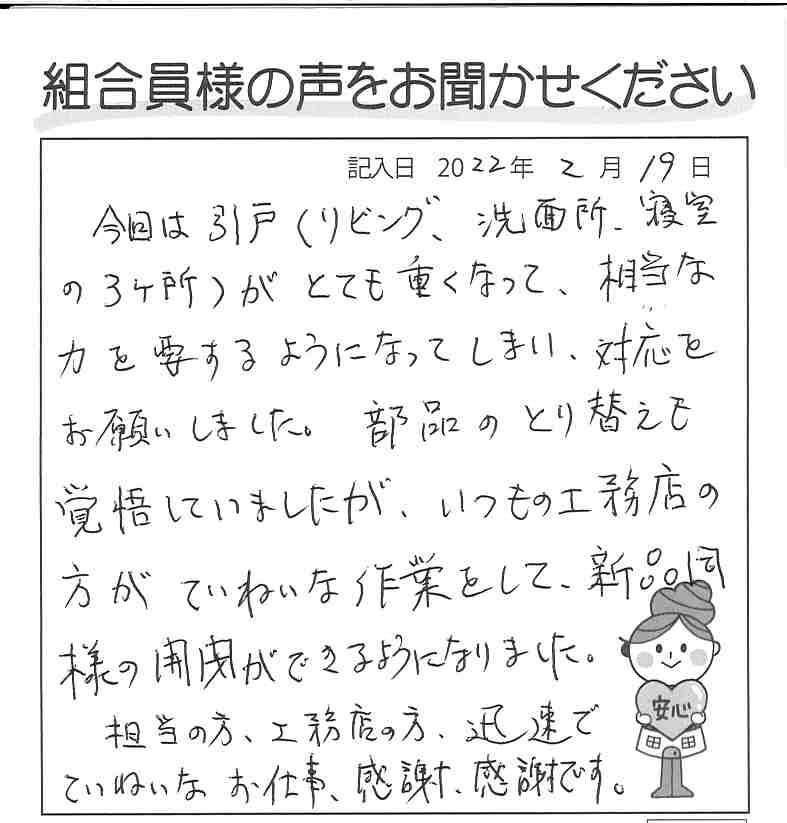 組合員様の声をお聞かせください
記入日 2022年 2月 19日
今回は引戸(リビング、洗面所、寝室
の3ケ所)がとても重くなって、相当な
力を要するようになってしまい、対応を
お願いしました。部品のとり替えも
覚悟していましたが、いつもの工務店の
方がていねいな作業をして、新品同
様の開閉ができるようになりました。
担当の方、工務店の方、迅速で
ていねいなお仕事、感謝、感謝です。
安心